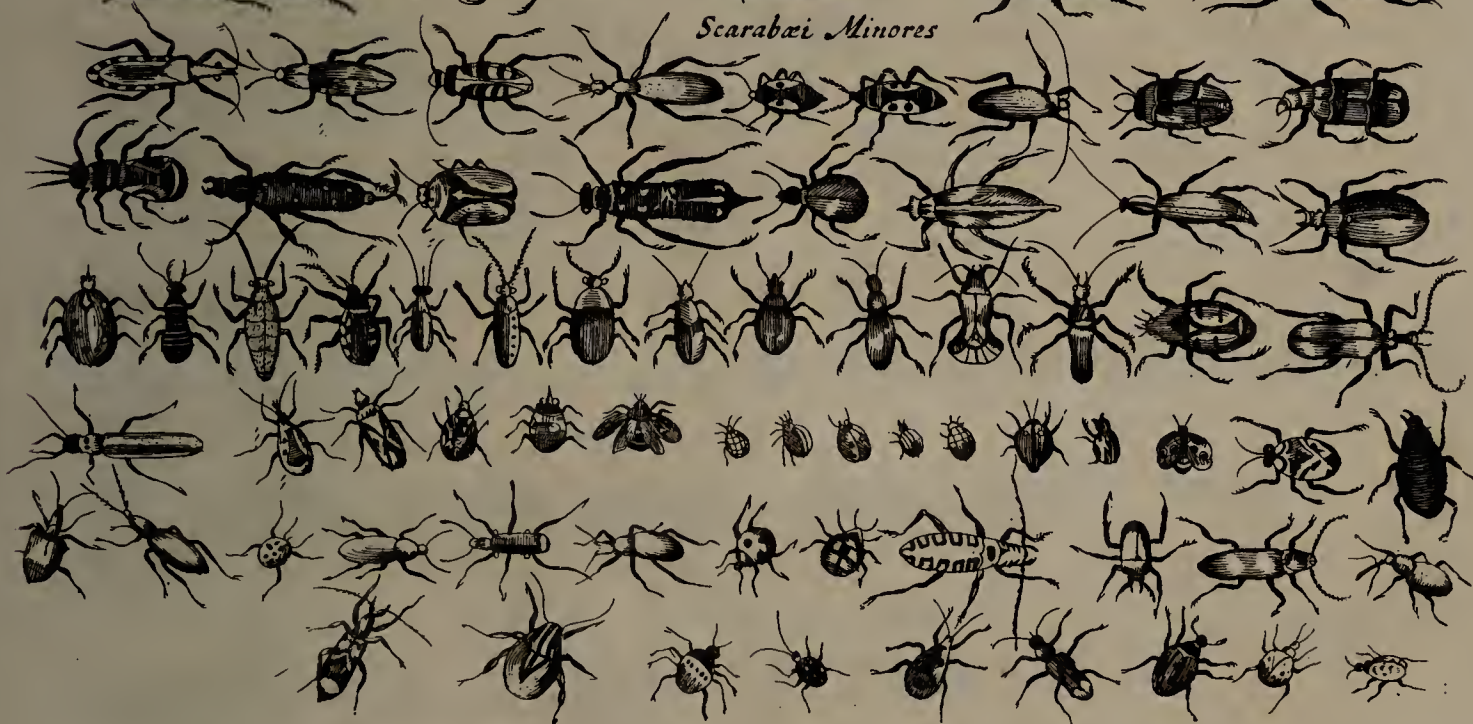 Scarabæi Minores